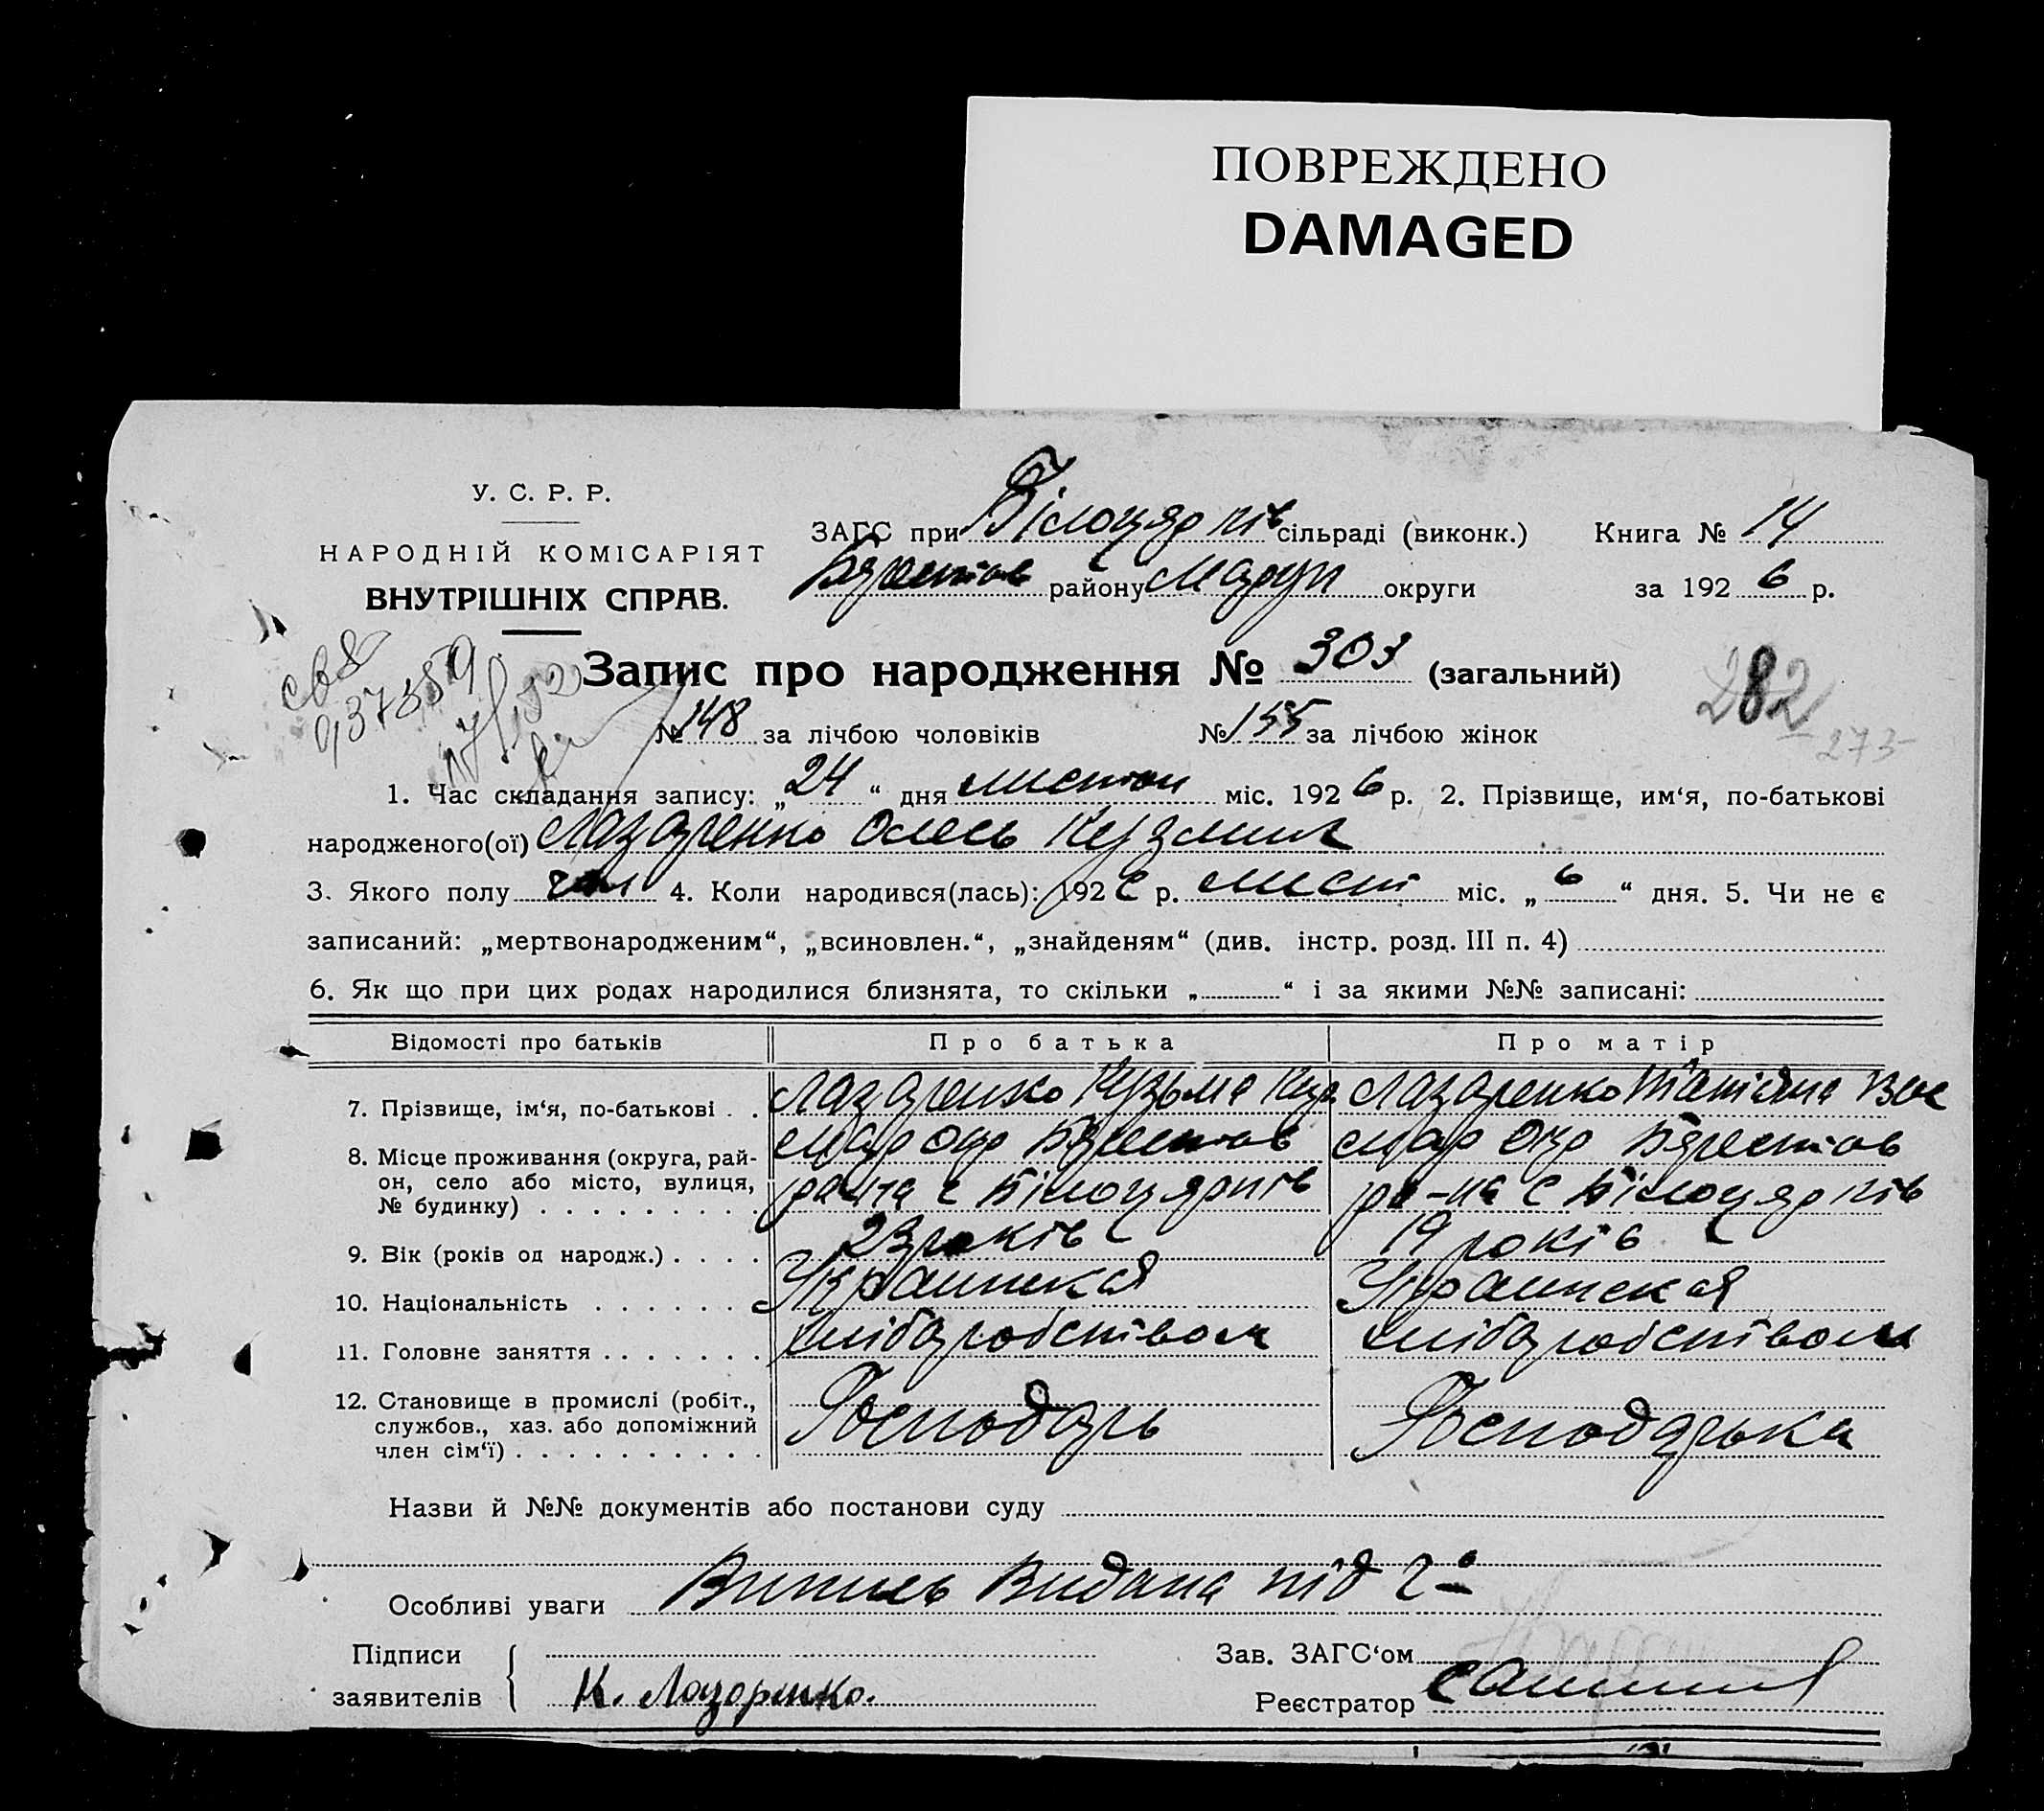 ПОВРЕЖДЕНО
DAMAGED
У. С. Р. Р.
НАРОДНІЙ КОМІСАРІЯТ
ВНУТРІШНІХ СПРАВ.
ЗАГС при Білоцерків сільраді (виконк.) Книга № 14
району Маруп округи за 1926 р.
Запис про народження № 303 (загальний)
282
273
№ 148 за лічбою чоловіків № 155 за лічбою жінок
1. Час складання запису: „24“ дня листоп міс. 1926 р. 2. Прізвище, им‘я, по-батькові
народженого(ої) Лазаренко Олесь Кузмич
3. Якого полу чол 4. Коли народився(лась): 1926 р. лист міс. „6“ дня. 5. Чи не є
записаний: „мертвонародженим“, „всиновлен.“, „знайденям“ (див. інстр. розд. III п. 4)
6. Як що при цих родах народилися близнята, то скільки „ “ і за якими №№ записані:
Відомості про батьків Про батька Про матір
7. Прізвище, ім‘я, по-батькові Лазаренко Кузьма Куз Лазаренко Татіяна Вас
8. Місце проживання (округа, рай-
он, село або місто, вулиця,
№ будинку)
Мар Окр Берестов Мар Окр Берестов
ра-на с Білоцерків ра-на с Білоцерків
9. Вік (років од народж.) 23 років 19 років
10. Національність Украинская Украинская
11. Головне заняття хлібаробством хлібаробством
12. Становище в промислі (робіт.,
службов., хаз. або допоміжний
член сім‘ї)
Господарь Господарька
Назви й №№ документів або постанови суду
Особливі уваги Випись Видана під
Підписи
заявителів К. Лазаренко.
Зав. ЗАГС‘ом
Реєстратор